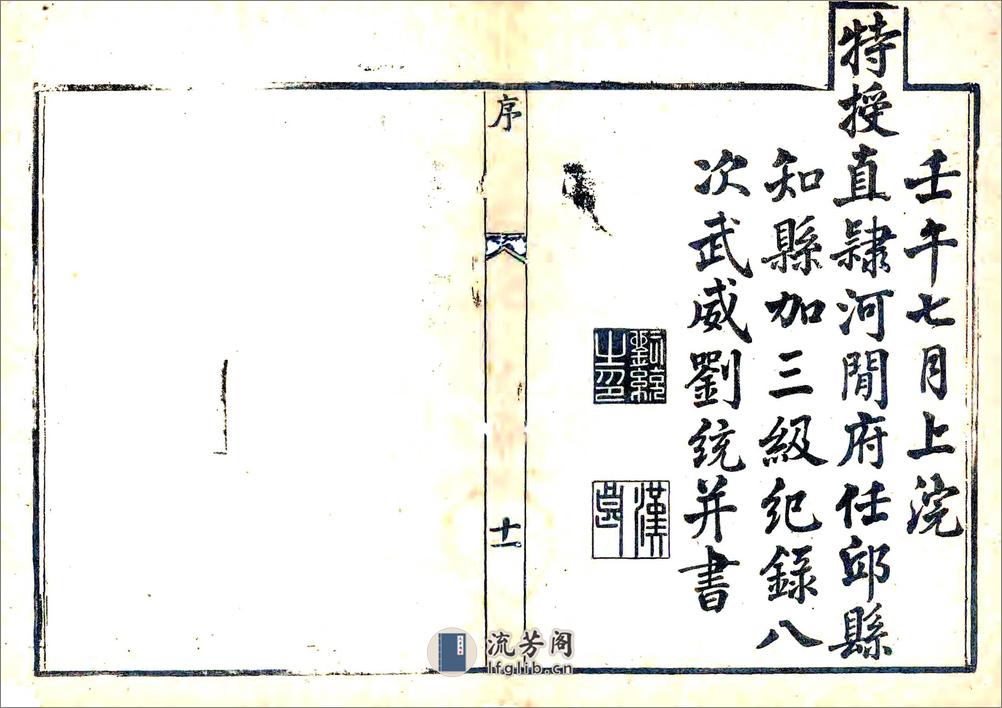 壬午七月上浣
特授直隸河間府任邱縣
知縣加三級紀錄八
次武威劉統并書
劉統
之印
漢
序
十一
流芳阁
lfglib.cn